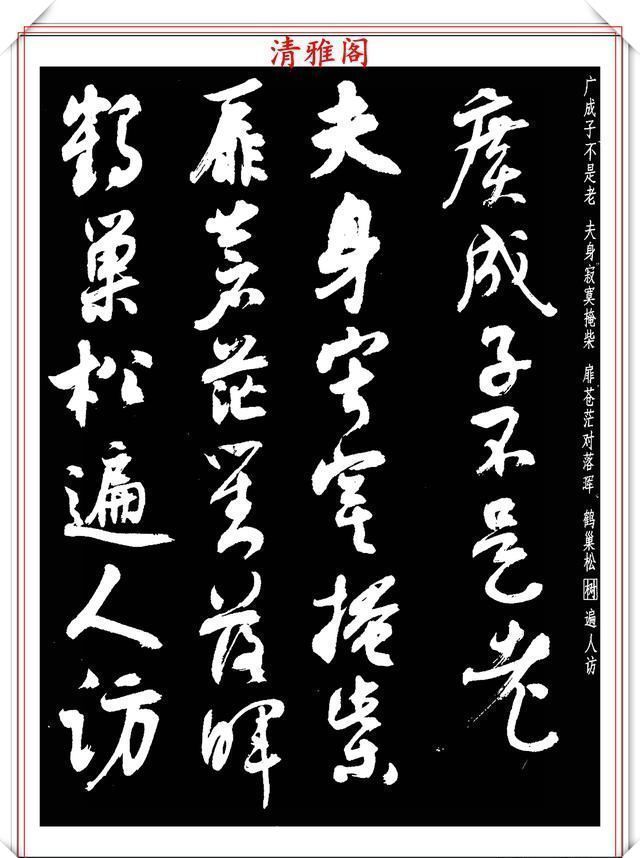 清雅阁
广成子不是老 夫身寂寞掩柴 扉苍茫对落珲 鹤巢松树遍人访
廣成子不是老
夫身寂寞掩柴
扉蒼茫對落暉
鶴巢松遍人訪